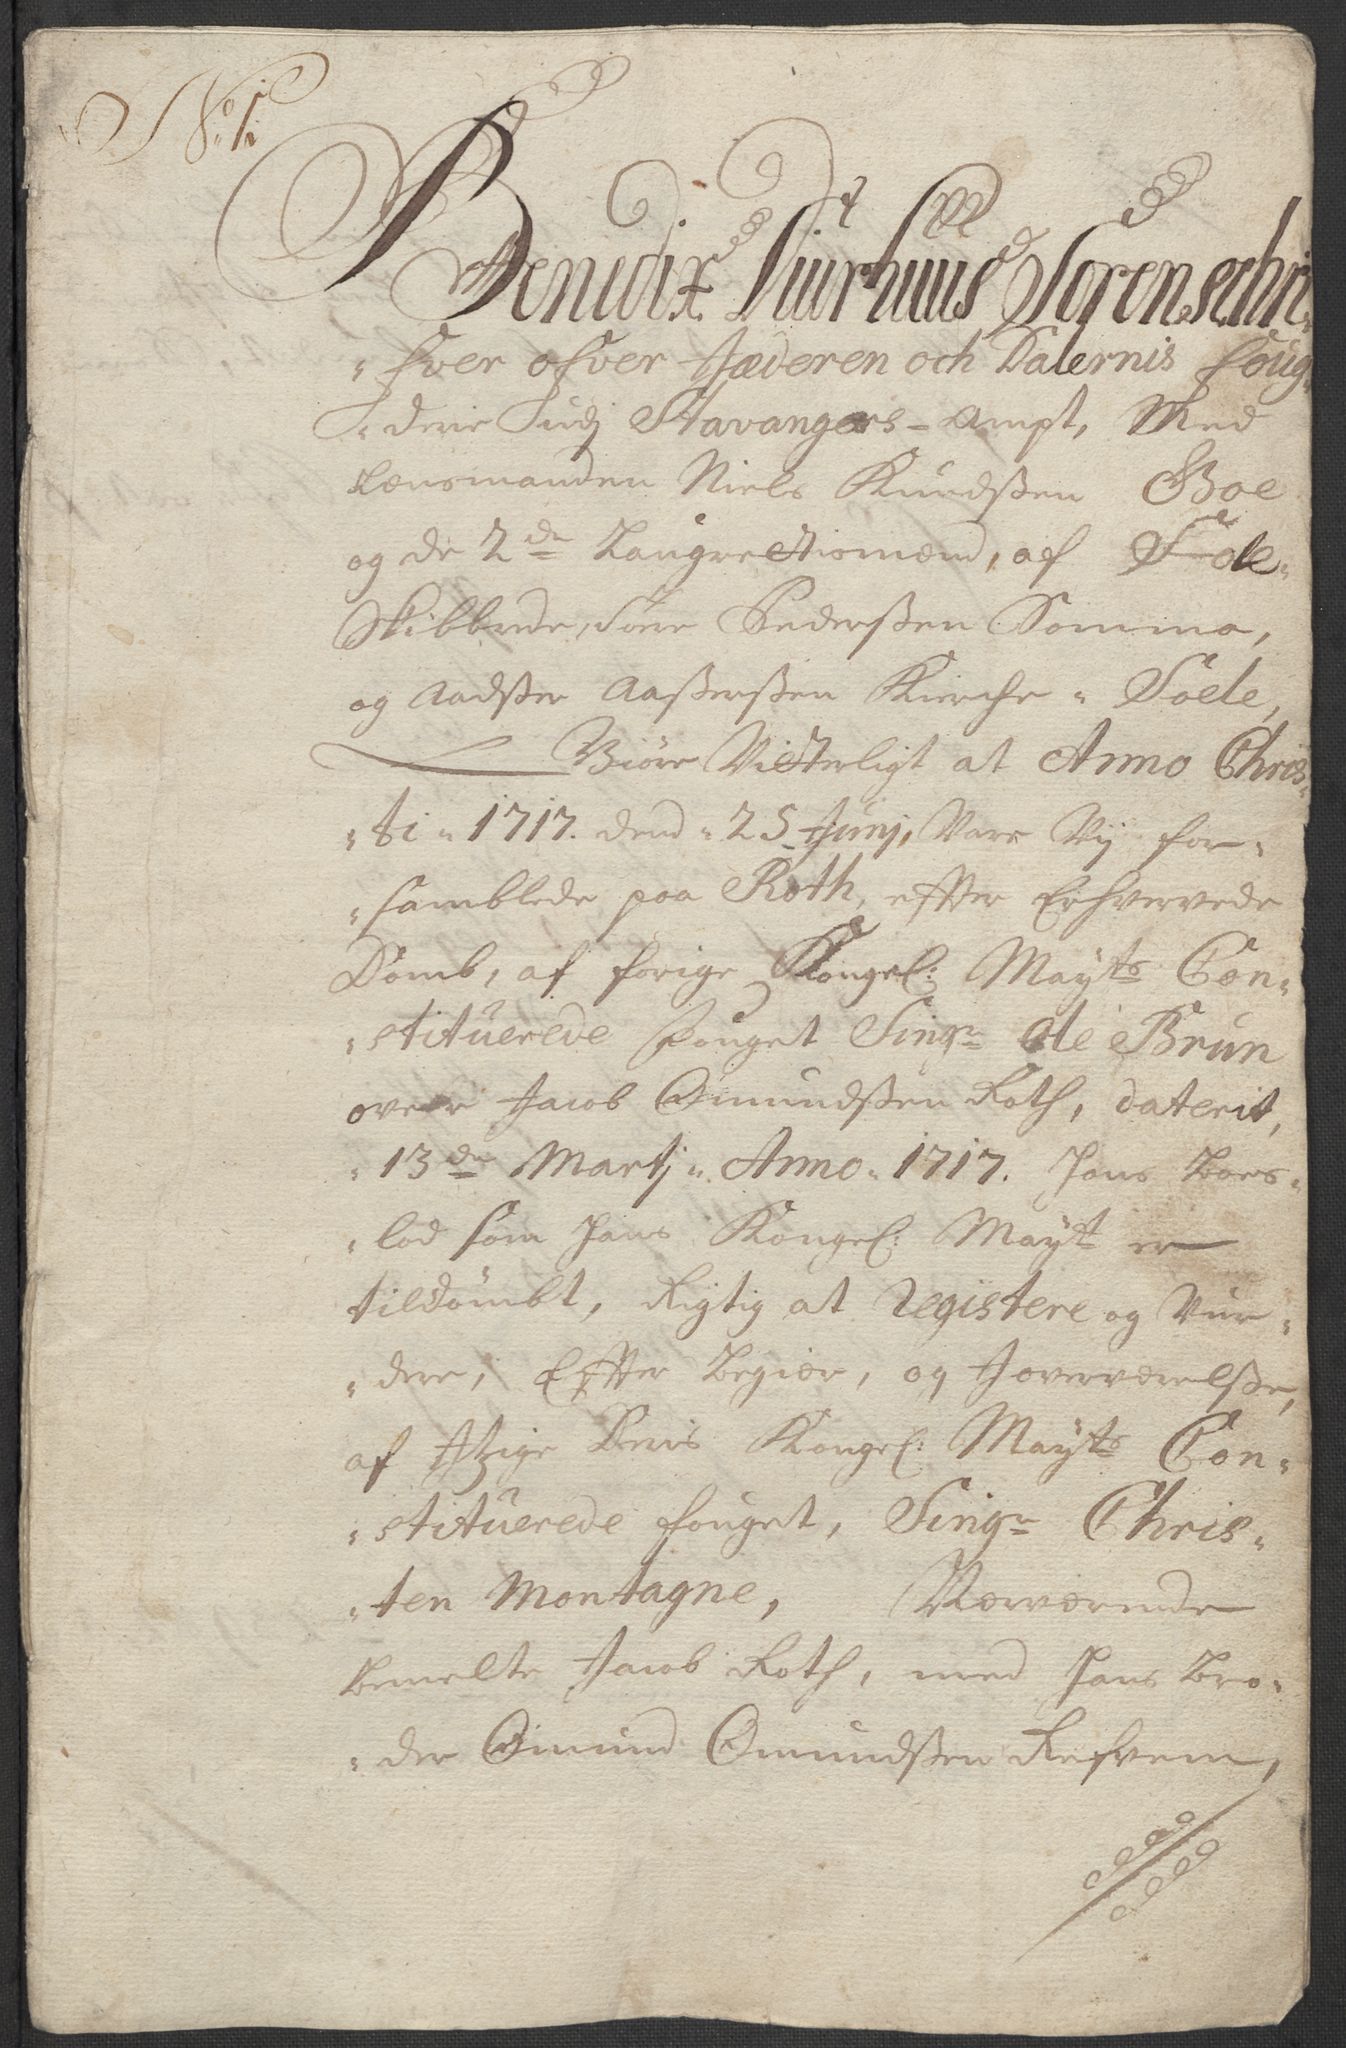 No. 1.
Bendix Diurhuus Sorenschri-
fver ofver Jæderen och Dalernis foug-
derie Udj Stavangers-Ampt, Med
Lænsmanden Niels Knudsßen Boe
og de 2de Laugrettismænd, af Sole-
Skibbrede, Tore Pedersßen Somma,
og Aadsßer Aasßersßen Kirche-Soele,
Giøre Vitterligt at Anno Chris-
ti 1717. dend 25 Junj, Vare Vij for-
samblede paa Roth, effter Erhvervede
Domb, af forige Kongel: Mayts Con-
stituerede Fouget Singr Ole Brun
over Jacob Omundsßen Roth, daterit,
13de Martj Anno 1717. Hans Boes-
lod som Hans Kongel: Mayt er
tildømbt, Rigtig at Registere og Vur-
dere, Effter Begiær, og Joverværelsße,
af Itzige Deris Kongel: Mayts Con-
stituerede fouget, Singr Chris-
ten Montagne, Nærværende
bemelte Jacob Roth, med Hans Bro-
der Omund Omundsßen Refvem,